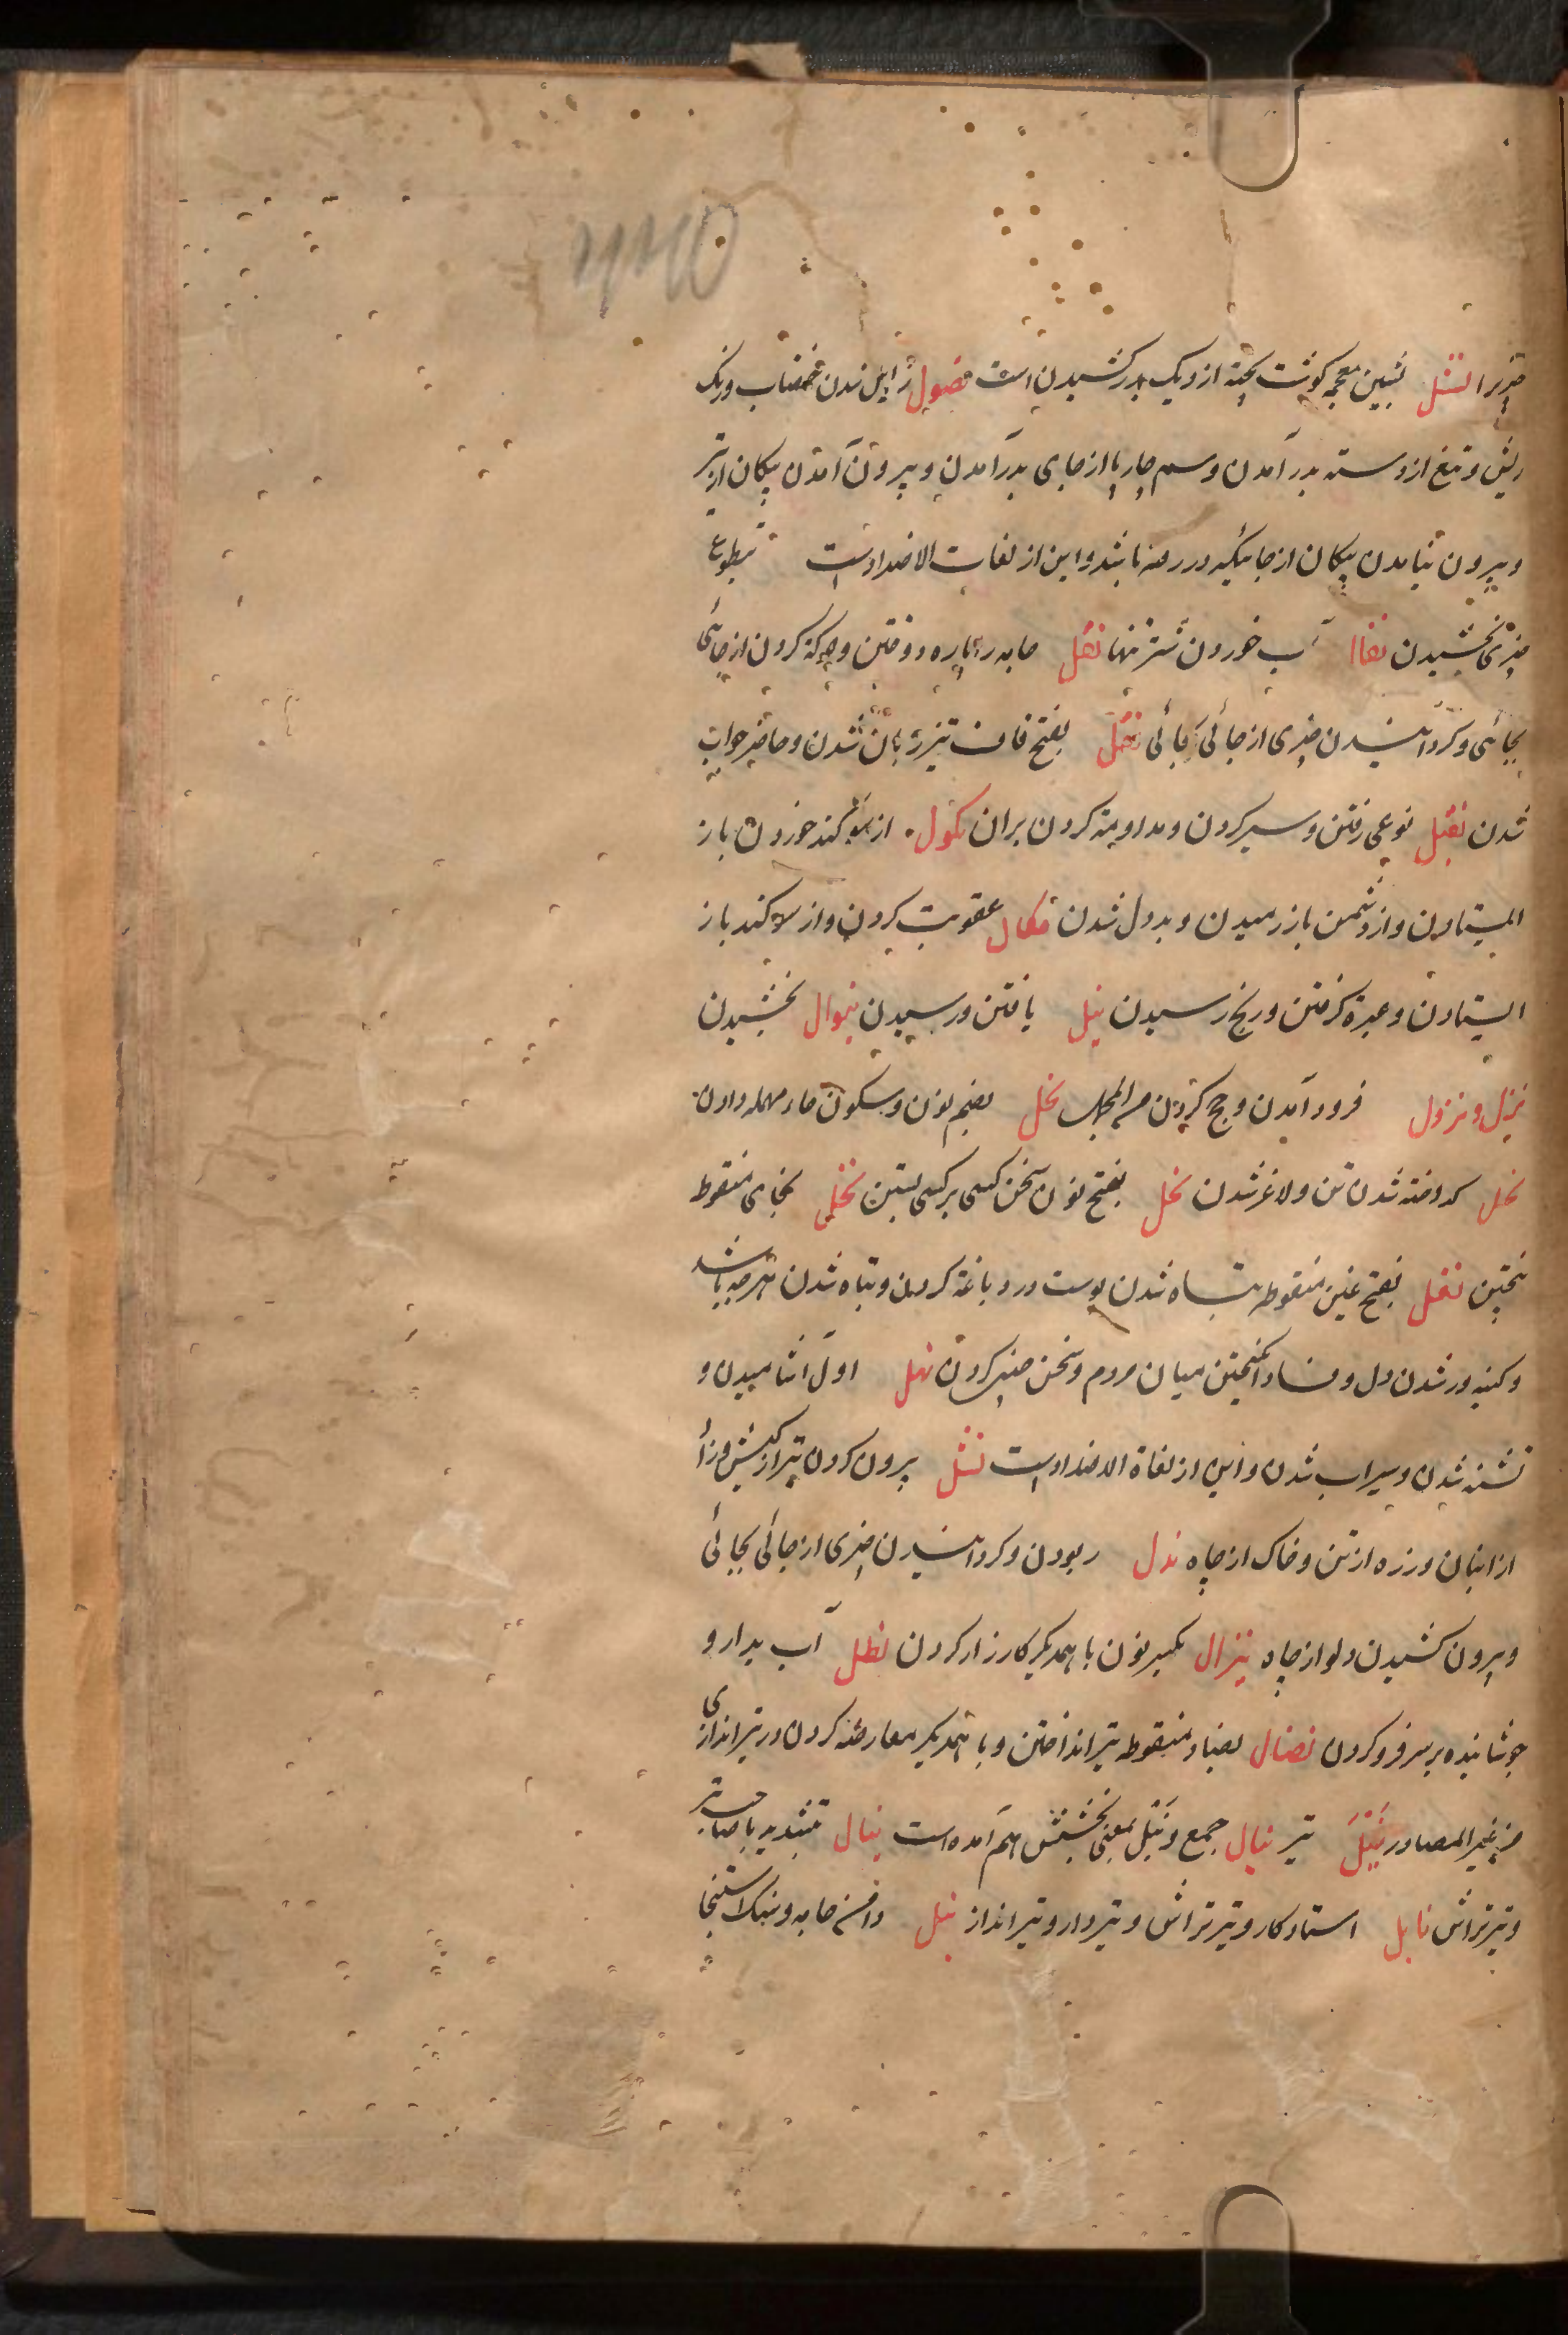 چیزیرا نشل بشین معجمه کوشت پخته از دیک بدر کشیدن است نصول زایل شدن خضاب ورنک
ریش و تیغ از دسته بدر آمدن و سم چارپا از جای بدر آمدن و بیرون آمدن پیکان از تیر
و بیرون نیامدن پیکان از جائیکه در رفته باشد و این از لغات الاضداد است بطوع
چیزی بخشیدن آب خوردن شتر تنها نقل جامه را پاره دوختن و حرکة کردن از جائی
بجائی و کردانیدن چیزی از جائی بجائی نقل بفتح قاف تیز زبان شدن و حاضر جواب
شدن نقیل نوعی رفتن و سیر کردن و مداومة کردن بران نکول از سوکند خوردن باز
ایستادن و از دشمن باز رمیدن و بددل شدن نکال عقوبت کردن و از سوکند باز
ایستادن و عبرة کرفتن و رنج رسیدن نیل یافتن و رسیدن نوال بخشیدن
نزل و نزول فرود آمدن و حج کردن نحل بضم نون و سکون حاء مهمله دادن
نحل کداخته شدن تن و لاغر شدن نحل بفتح نون سخن کسی بر کسی بستن نخل بخای منقوط
بختن نغل بفتح غین منقوطه تباه شدن پوست در دباغة کردن و تباه شدن هرچه باشد
و کینه ور شدن دل و فساد انکیختن میان مردم و سخن چینی کردن نهل اول آشامیدن و
تشنه شدن و سیراب شدن و این از لغاة الاضداد است نثل بیرون کردن تیر از کیش و زاد
از انبان و زره از تن و خاک از چاه ندل ربودن و کردانیدن چیزی از جائی بجائی
و بیرون کشیدن دلو از چاه نزال بکسر نون با همدیکر کارزار کردن نطل آب بدارو
جوشانیده بر سر فرو کردن نضال بضاد منقوطه تیر انداختن و با همدیکر معارضه کردن در تیر اندازی
من غیر المصادر نَبْلَ تیر نبال جمع و نَبْل بمعنی بخشش هم آمده است نبال بتشدید با صاحب تیر
و تیر تراش نابل استاد کار و تیر تراش و تیردار و تیر انداز نبل جامه و سنک استنجا